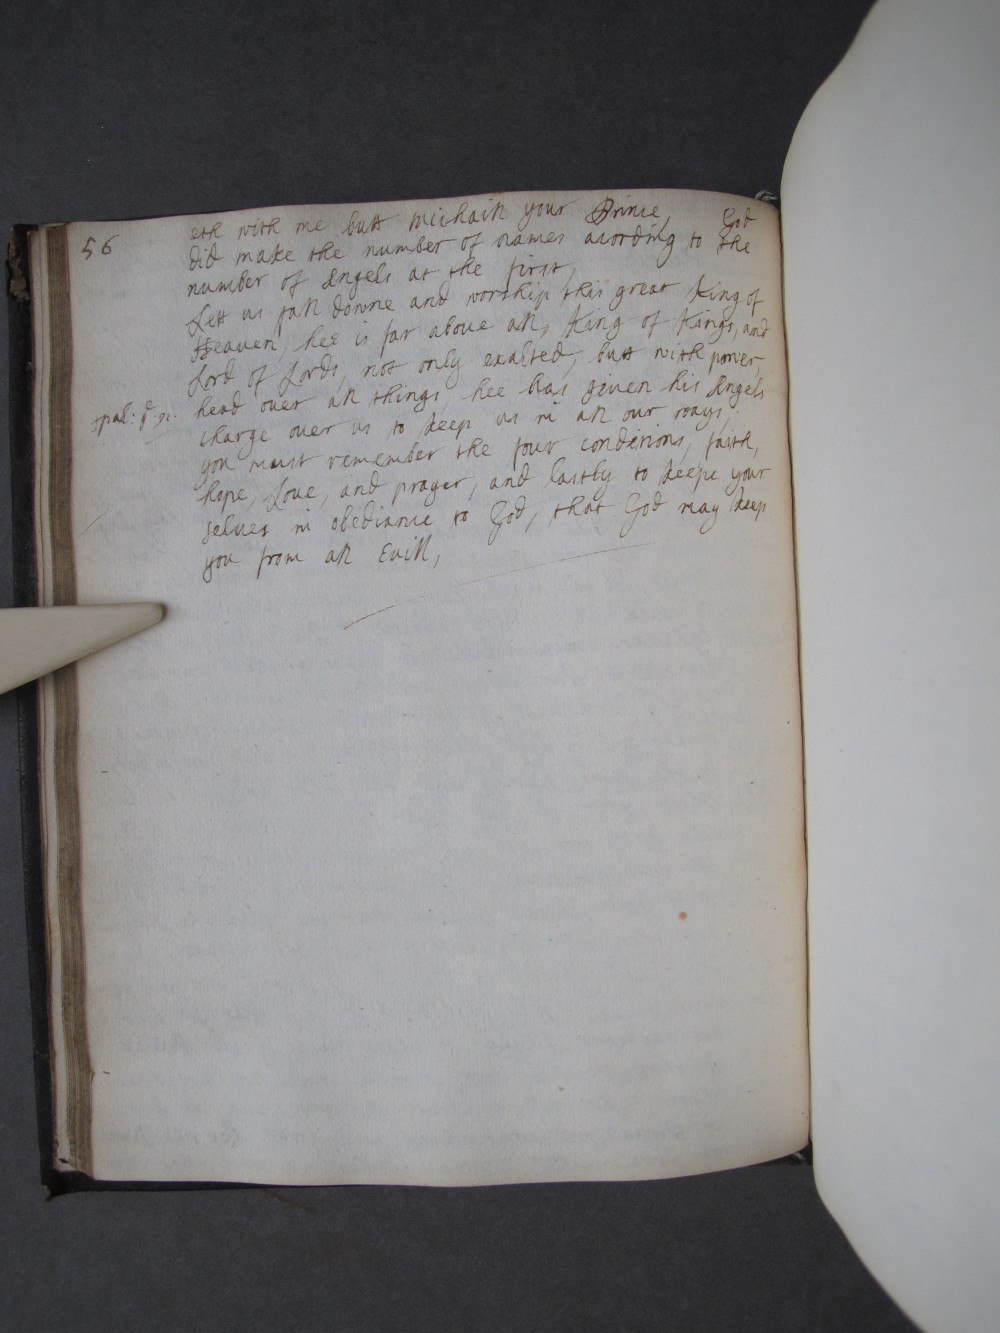 56
eth with me butt Michaill your Prince, God
did make the number of names acording to the
number of Angels at the first,
Lett us fall downe and worship this great King of
Heaven, hee is far above all, King of Kings, and
Lord of Lords, not only exalted, butt with power,
head over all things hee has given his Angels
psal: 91. charge over us to keep us in all our ways,
you must remember the four conditions, faith,
hope, Love, and prayer, and lastly to keepe your
selves in obediance to God, that God may keep
you from all Evill,